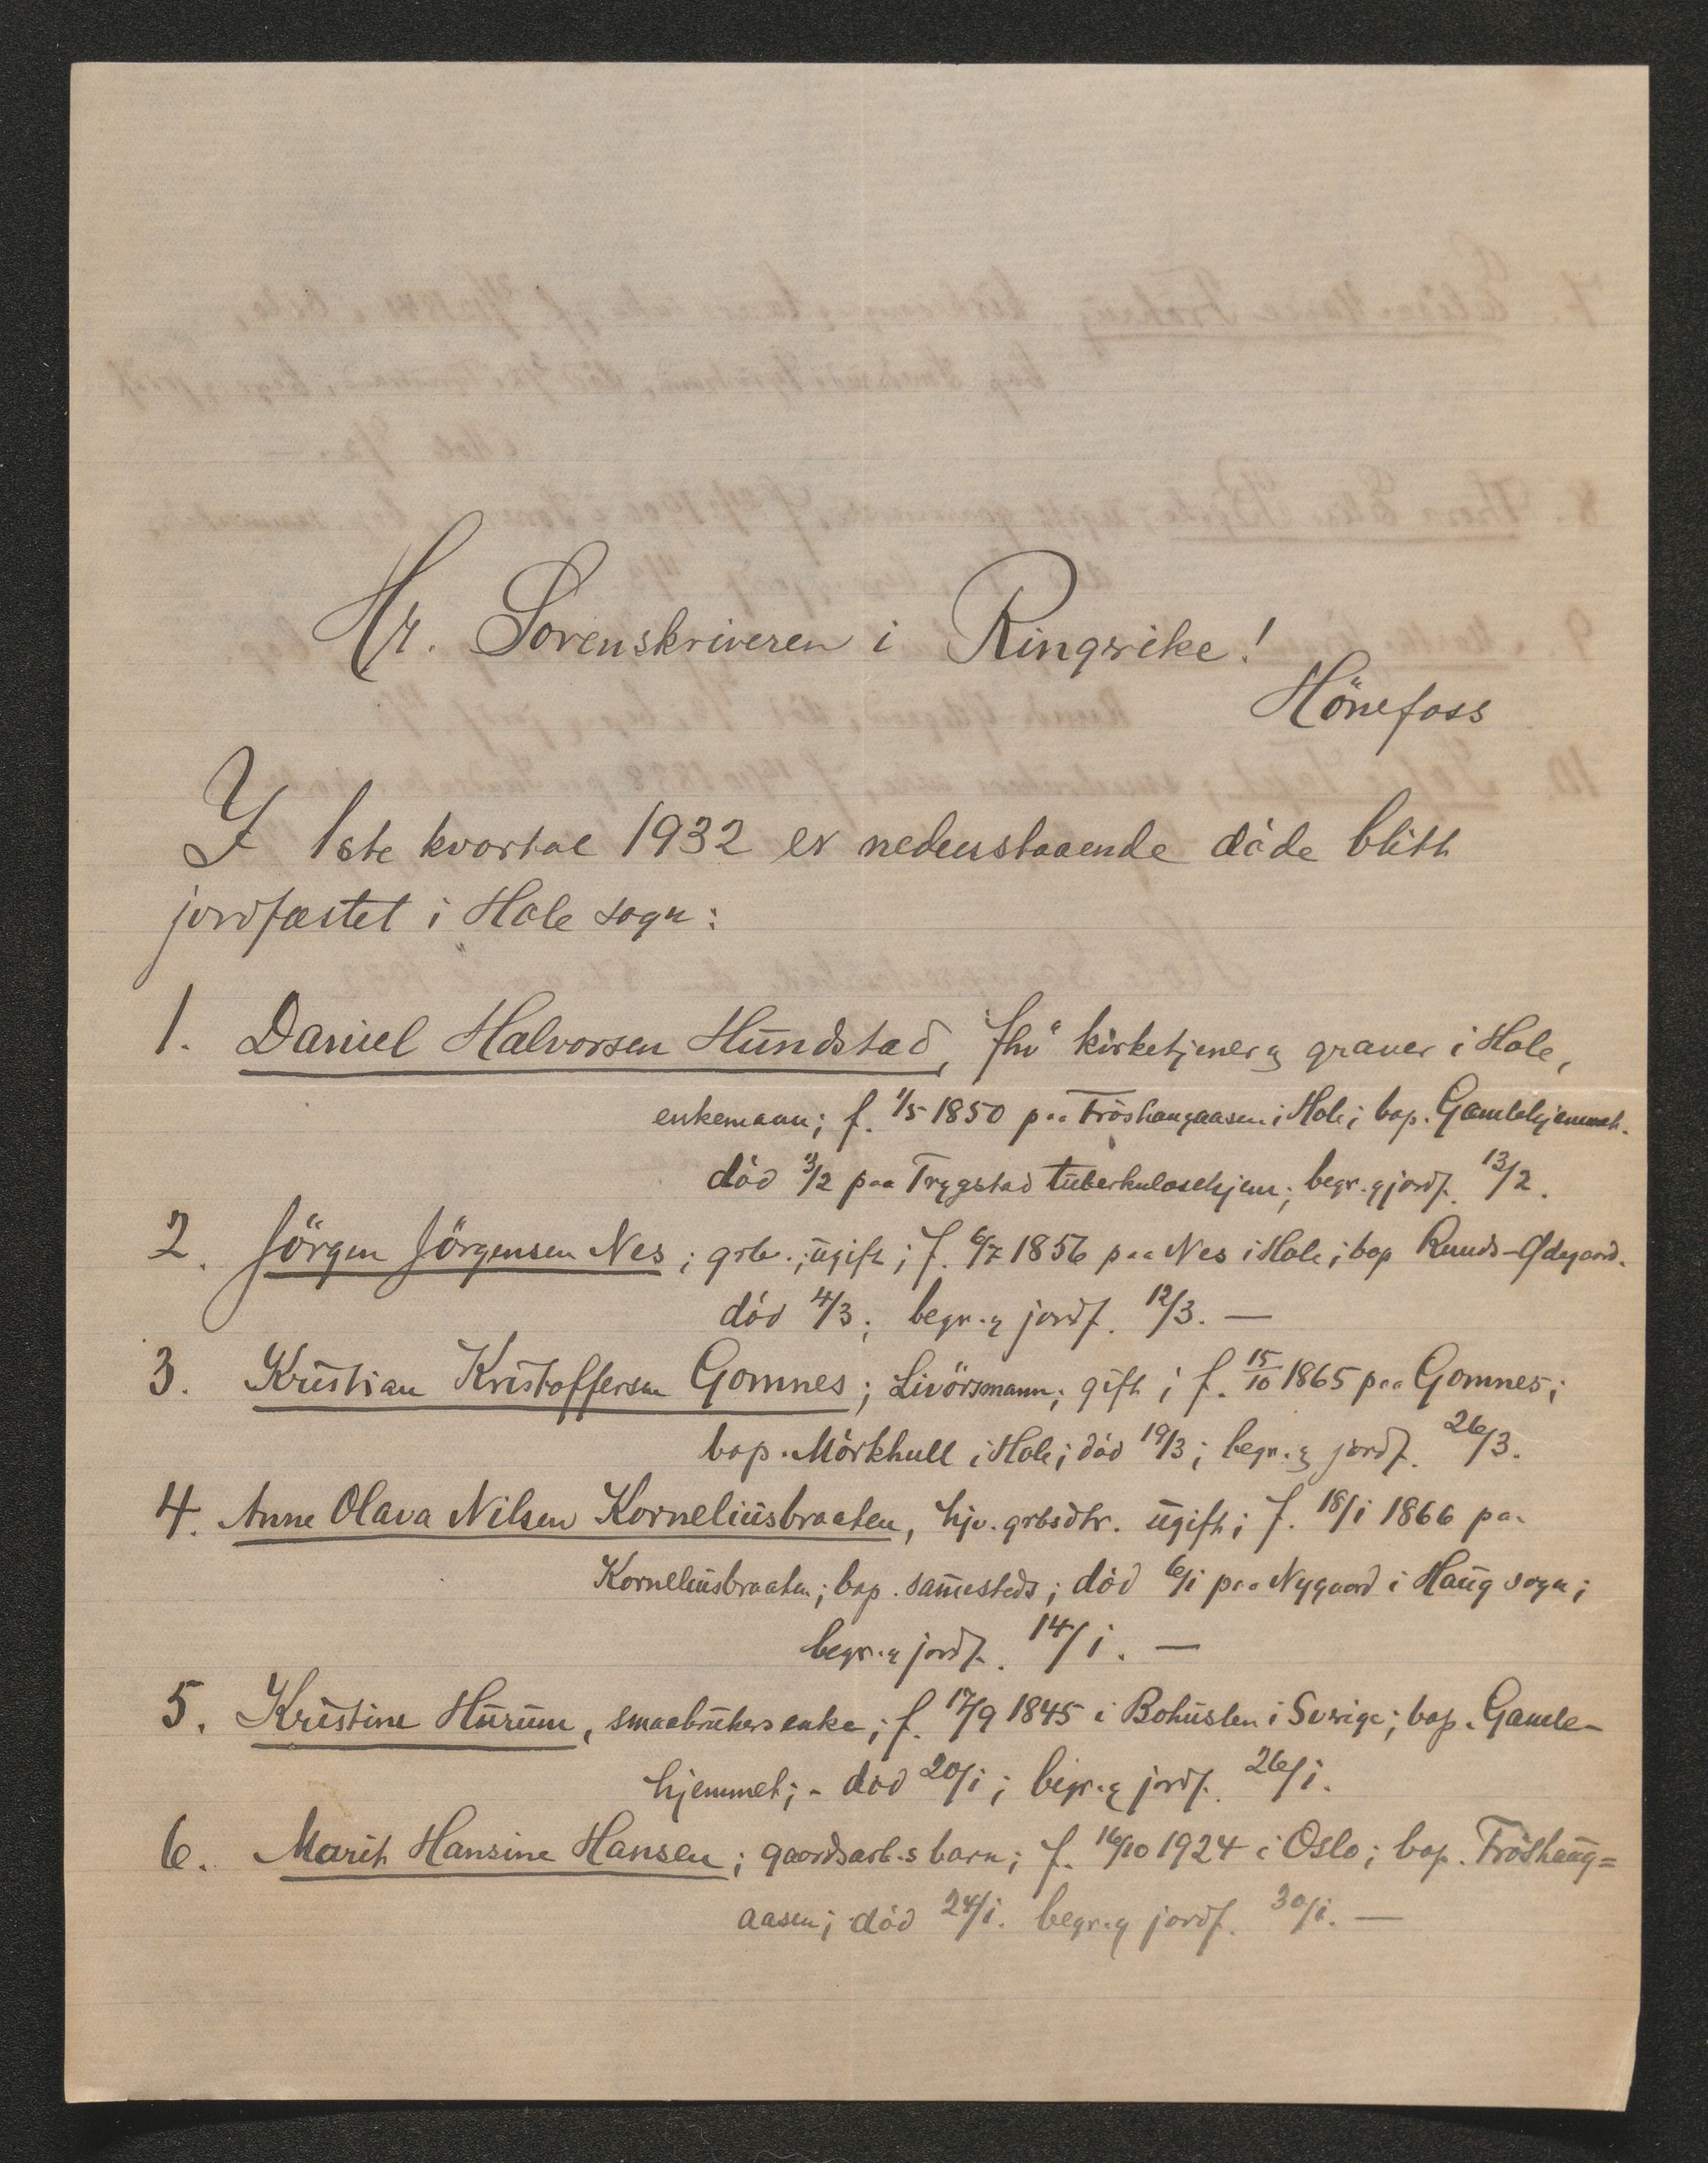 Hr. Sorenskriveren i Ringerike!
Hönefoss
I 1ste kvartal 1932 er nedenstaaende döde blitt
jordfæstet i Hole sogn:
1. Daniel Halvorsen Hundstad, fhv. kirketjener og graver i Hole,
enkemann; f. 1/5 1850 paa Fröshaugaasen i Hole; bop. Gamlehjemmet.
död 3/2 paa Trygstad tuberkulosehjem; begr. og jordf. 13/2.
2. Jörgen Jörgensen Nes; grbr.; ugift; f. 6/7 1856 paa Nes i Hole; bop Ruuds-Ödegaard.
död 4/3; begr. og jordf. 12/3. —
3. Kristian Kristoffersen Gomnes; Livörsmann; gift; f. 15/10 1865 paa Gomnes;
bop. Mörkhull i Hole; död 19/3; begr. og jordf. 26/3.
4. Anne Olava Nilsen Korneliusbraaten, hjv. grbsdtr. ugift; f. 18/1 1866 paa
Korneliusbraaten; bop. sammesteds; död 6/1 paa Nygaard i Haug sogn;
begr. og jordf. 14/1. —
5. Kristine Hurum, smaabrukers enke; f. 17/9 1845 i Bohuslen i Sverige; bop. Gamle-
hjemmet; - död 20/1; begr. og jordf. 26/1.
6. Marit Hansine Hansen; gaardsarb.s barn; f. 16/10 1924 i Oslo; bop. Fröshaug=
aasen; död 24/1. begr. og jordf. 30/1. —